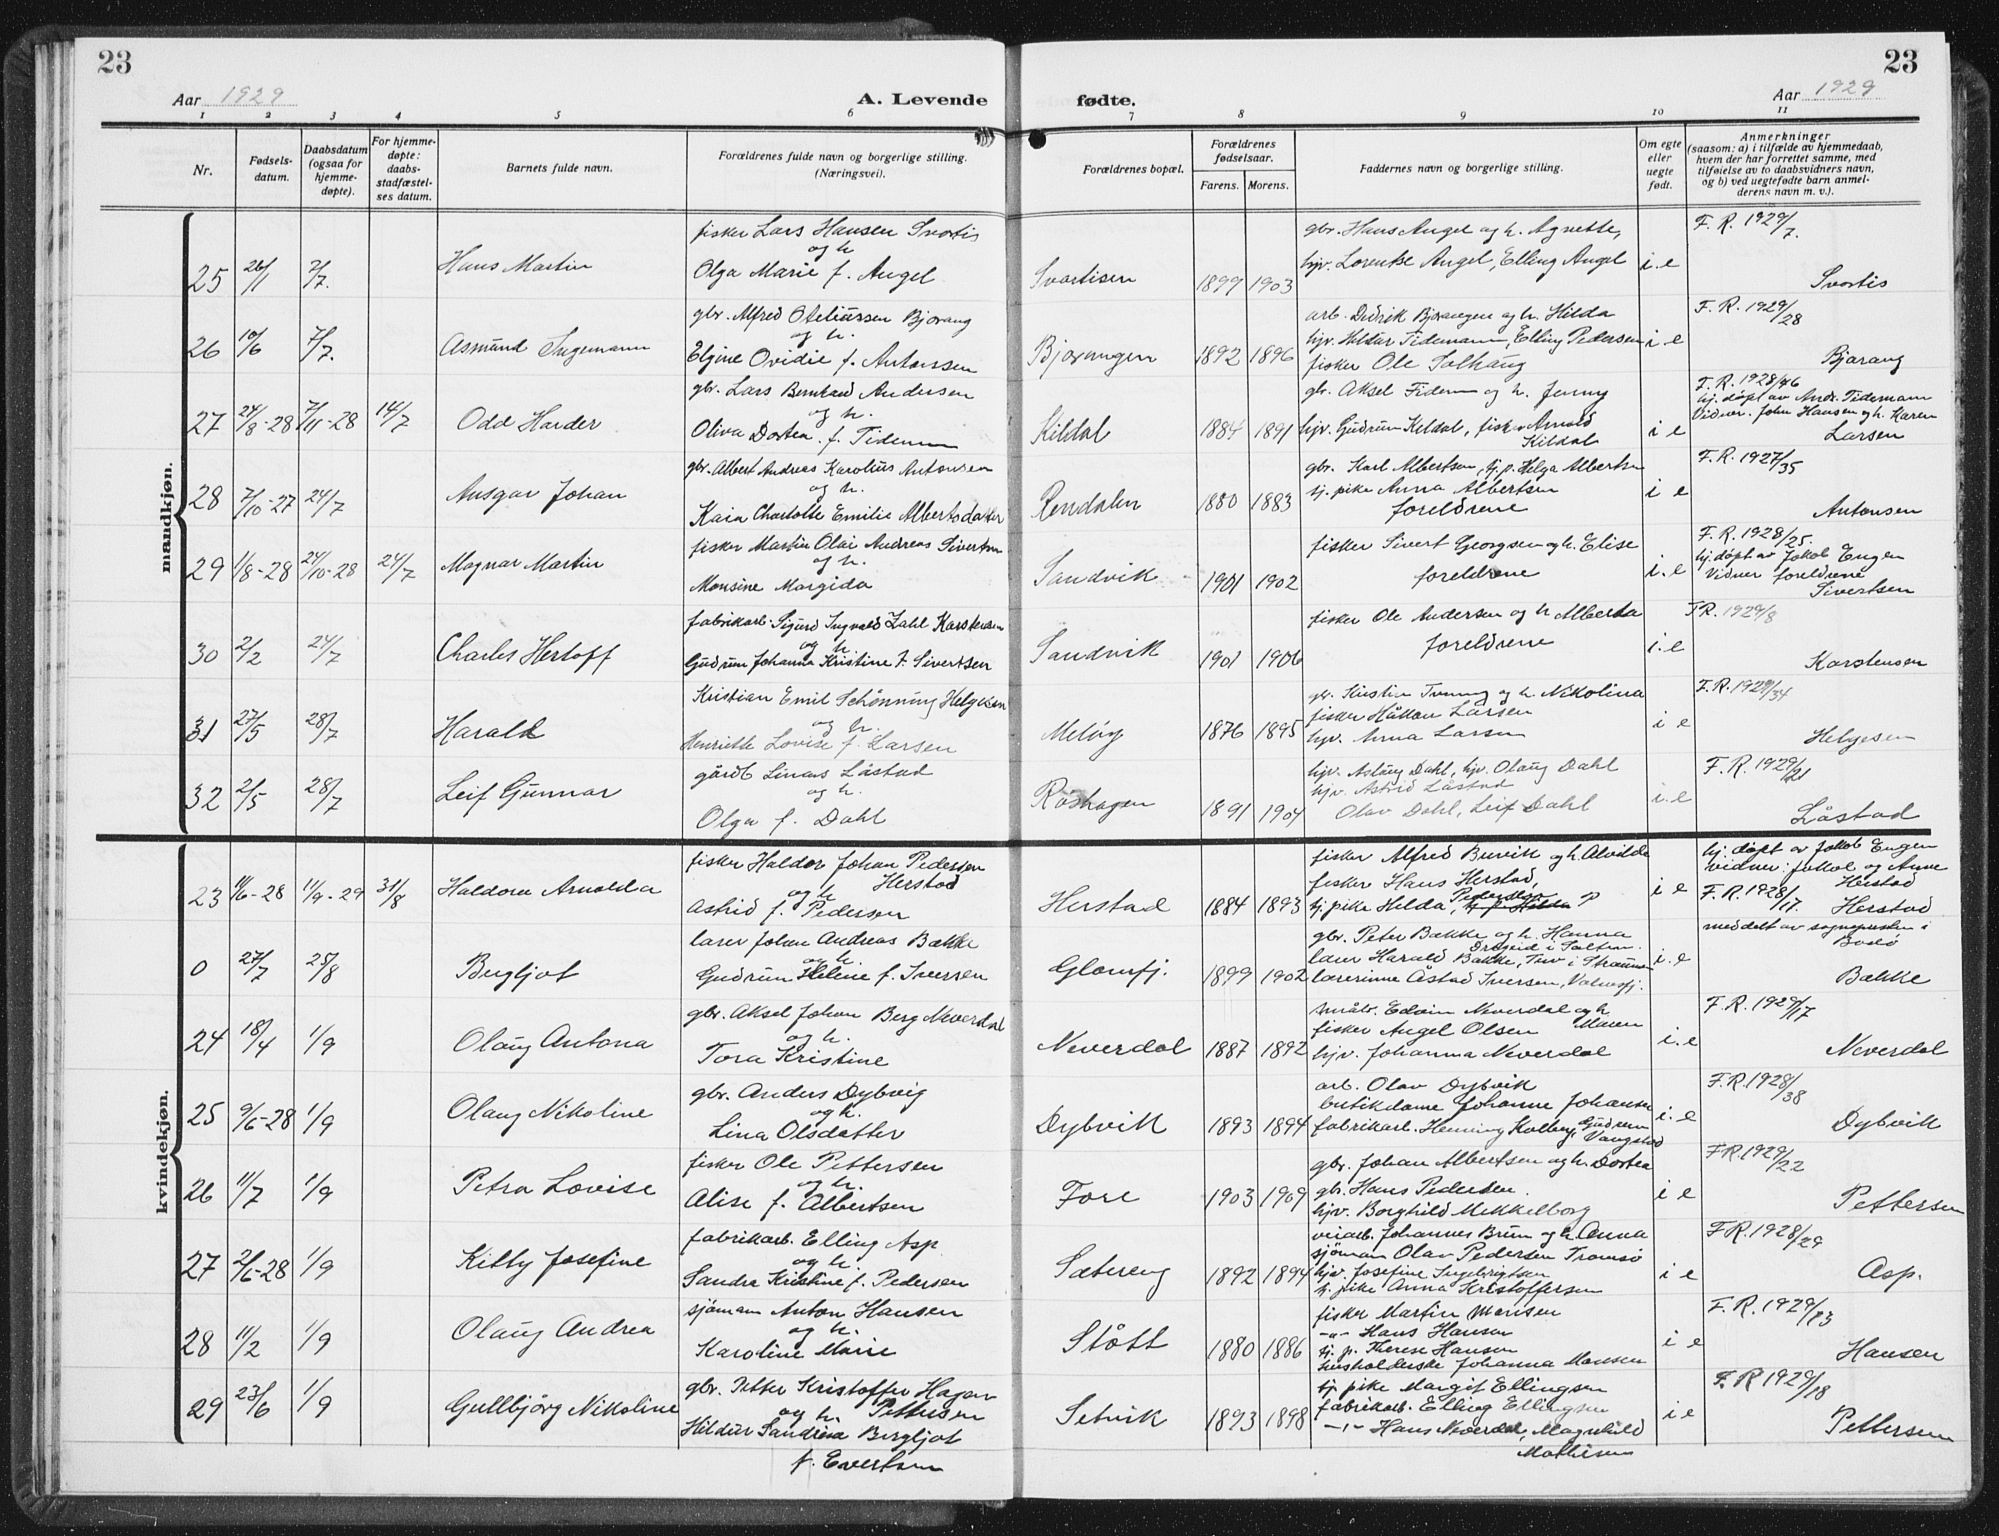 23
23
Aar 1929
A. Levende
fødte.
Aar 1929
1 2 3 4 5 6 7 8 9 10 11
Nr.
Fødsels-
datum.
Daabsdatum
(ogsaa for
hjemme-
døpte).
For hjemme-
døpte:
daabs-
stadfæstel-
ses datum.
Barnets fulde navn.
Forældrenes fulde navn og borgerlige stilling.
(Næringsvei).
Forældrenes bopæl.
Forældrenes
fødselsaar.
Farens. Morens.
Faddernes navn og borgerlige stilling.
Om egte
eller
uegte
født.
Anmerkninger
(saasom: a) i tilfælde av hjemmedaab,
hvem der har forrettet samme, med
tilføielse av to daabsvidners navn,
og b) ved uegtefødte barn anmel-
derens navn m. v.).
mandkjøn.
25 26/1 7/7. Hans Martin
fisker Lars Hansen Svartis
og h
Olga Marie f. Angel
Svartisen 1899 1903
gbr. Hans Angel og h. Agnette,
hjv. Lorentse Angel, Elling Angel i.e
F. R. 1929/7.
Svartis
26 10/6 7/7. Asmund Ingemann
gbr. Alfred Oteliussen Bjørang
og h.
Elgine Ovidie f. Antonsen
Bjørangen 1892 1896
arb. Didrik Bjørangen og h. Hilda
hjv. Hildur Tidemann, Elling Pedersen i e
fisker Ole Solhaug
F. R. 1929/28
Bjørang
27 24/8-28 7/11-28 14/7 Odd Harder
gbr. Lars Bernhard Andersen
og h.
Oliva Dortea f. Tidemann
Kildal 1884 1891
gbr. Aksel Tidemann og h. Jenny
hjv. Gudrun Kildal, fisker Arnold
Kildal i e
F. R. 1928/46
hj. døpt av Andr. Tidemann
Vidner: John Hansen og h. Karen
Larsen
28 7/10-27 24/7 Ansgar Johan
gbr. Albert Andreas Karolius Antonsen
og h.
Kaia Charlotte Emilie Albertsdatter
Rendalen 1880 1883
gbr. Karl Albertsen, tj. p. Helga Albertsen
tj. pike Anna Albertsen i e
foreldrene
F. R. 1927/35
Antonsen
29 1/8-28 24/10-28 24/7 Magnar Martin
fisker Martin Olai Andreas Sivertsen
og h.
Monsine Margida
Sandvik 1901 1902
fisker Sivert Georgsen og h. Elise
foreldrene i.e
F. R. 1928/25.
hj.døpt av Jakob Engen
Vidner foreldrene
Sivertsen
30 2/2 24/7 Charles Hertoff
fabrikarb. Sigurd Ingvald Zahl Karstensen
og h.
Gudrun Johanna Kristine f. Sivertsen
Sandvik 1901 1906
fisker Ole Andersen og h Alberta
foreldrene i.e
F.R. 1929/8
Karstensen
31 27/5 28/7 Harald
Kristian Emil Schönning Helgesen
og h.
Henriette Lovise f. Larsen
Meløy 1876 1895
gbr. Kristin Tvenning og h. Nikolina
fisker Håkon Larsen
hjv. Anna Larsen i e
F. R. 1929/34
Helgesen
32 2/5 28/7 Leif Gunnar
gårdb Linars Låstad
og h.
Olga f. Dahl
Røshagen 1891 1904
hjv. Aslaug Dahl, hjv. Olaug Dahl
hjv. Astrid Låstad
Olav Dahl, Leif Dahl i.e
F. R. 1929/21
Låstad
kvindekjøn.
23 11/6-28 11/9-29 31/8 Haldora Arnolda
fisker Haldor Johan Pedersen
og h Herstad
Astrid f. Pedersen
Herstad 1884 1893
fisker Alfred Burvik og h. Alvilde
fisker Hans Herstad,
tj. pike Hilda Pedersen i e
hj. døpt av Jakob Engen
vidner: Jakob og Anne
Herstad
F. R. 1928/17. Herstad
0 27/7 25/8 Bergljot
lærer Johan Andreas Bakke
og h.
Gudrun Helene f. Iversen
Glomfj. 1899 1902
gbr. Peter Bakke og h. Hanna
Drageid i Salten.
lærer Harald Bakke, Tuv i Straumen
lærerinne Åstad Iversen, Valnesfj. i.e
meddelt av sognepresten i
Bodø
Bakke
24 18/4 1/9 Olaug Antona
gbr. Aksel Johan Berg Neverdal
og h.
Tora Kristine
Neverdal 1887 1892
småbr. Edvin Neverdal og h.
Maren
fisker Angel Olsen
hjv. Johanna Neverdal i.e
F. R. 1929/17
Neverdal
25 9/6-28 1/9 Olaug Nikoline
gbr. Anders Dybvig
og h.
Lina Olsdatter
Dybvik 1893 1894
arb. Olav Dybvik
butikdame Johanne Johansen
fabrikarb. Henning Kolberg, Gudrun
Vangstad i.e
F.R. 1928/38
Dybvik
26 11/7 1/9 Petra Lovise
fisker Ole Pettersen
og h.
Alise f. Albertsen
Fore 1903 1909
gbr. Johan Albertsen og h. Dortea
gbr. Hans Pedersen.
hjv. Borghild Mikkelborg i e
F.R. 1929/22
Pettersen
27 2/6-28 1/9 Kitty Josefine
fabrikarb. Elling Asp
og h.
Sandra Kristine f. Pedersen
Sætereng 1892 1894
veiarb. Johannes Brun og h. Anna
sjømann Olav Pedersen Tromsø
hjv. Josefine Ingebrigtsen
tj. pike Anna Kristoffersen i e
F.R. 1928/29
Asp.
28 11/2 1/9 Olaug Andrea
sjømann Anton Hansen
og h.
Karoline Marie
Støtt 1880 1886
fisker Martin Monsen
-"- Hans Hansen
tj. p. Therese Hansen
husholderske Johanna Monsen i e
F. R. 1929/13
Hansen
29 23/6 1/9 Gullbjörg Nikoline
gbr. Petter Kristoffer Hagen
og h. Pettersen
Hildur Sandrea Bergljot
f. Evertsen
Setvik 1893 1898
tj. pike Margit Ellingsen
fabrikarb. Elling Ellingsen
-"- Hans Neverdal, Magnhild
Mathisen i e
F. R 1929/18
Pettersen